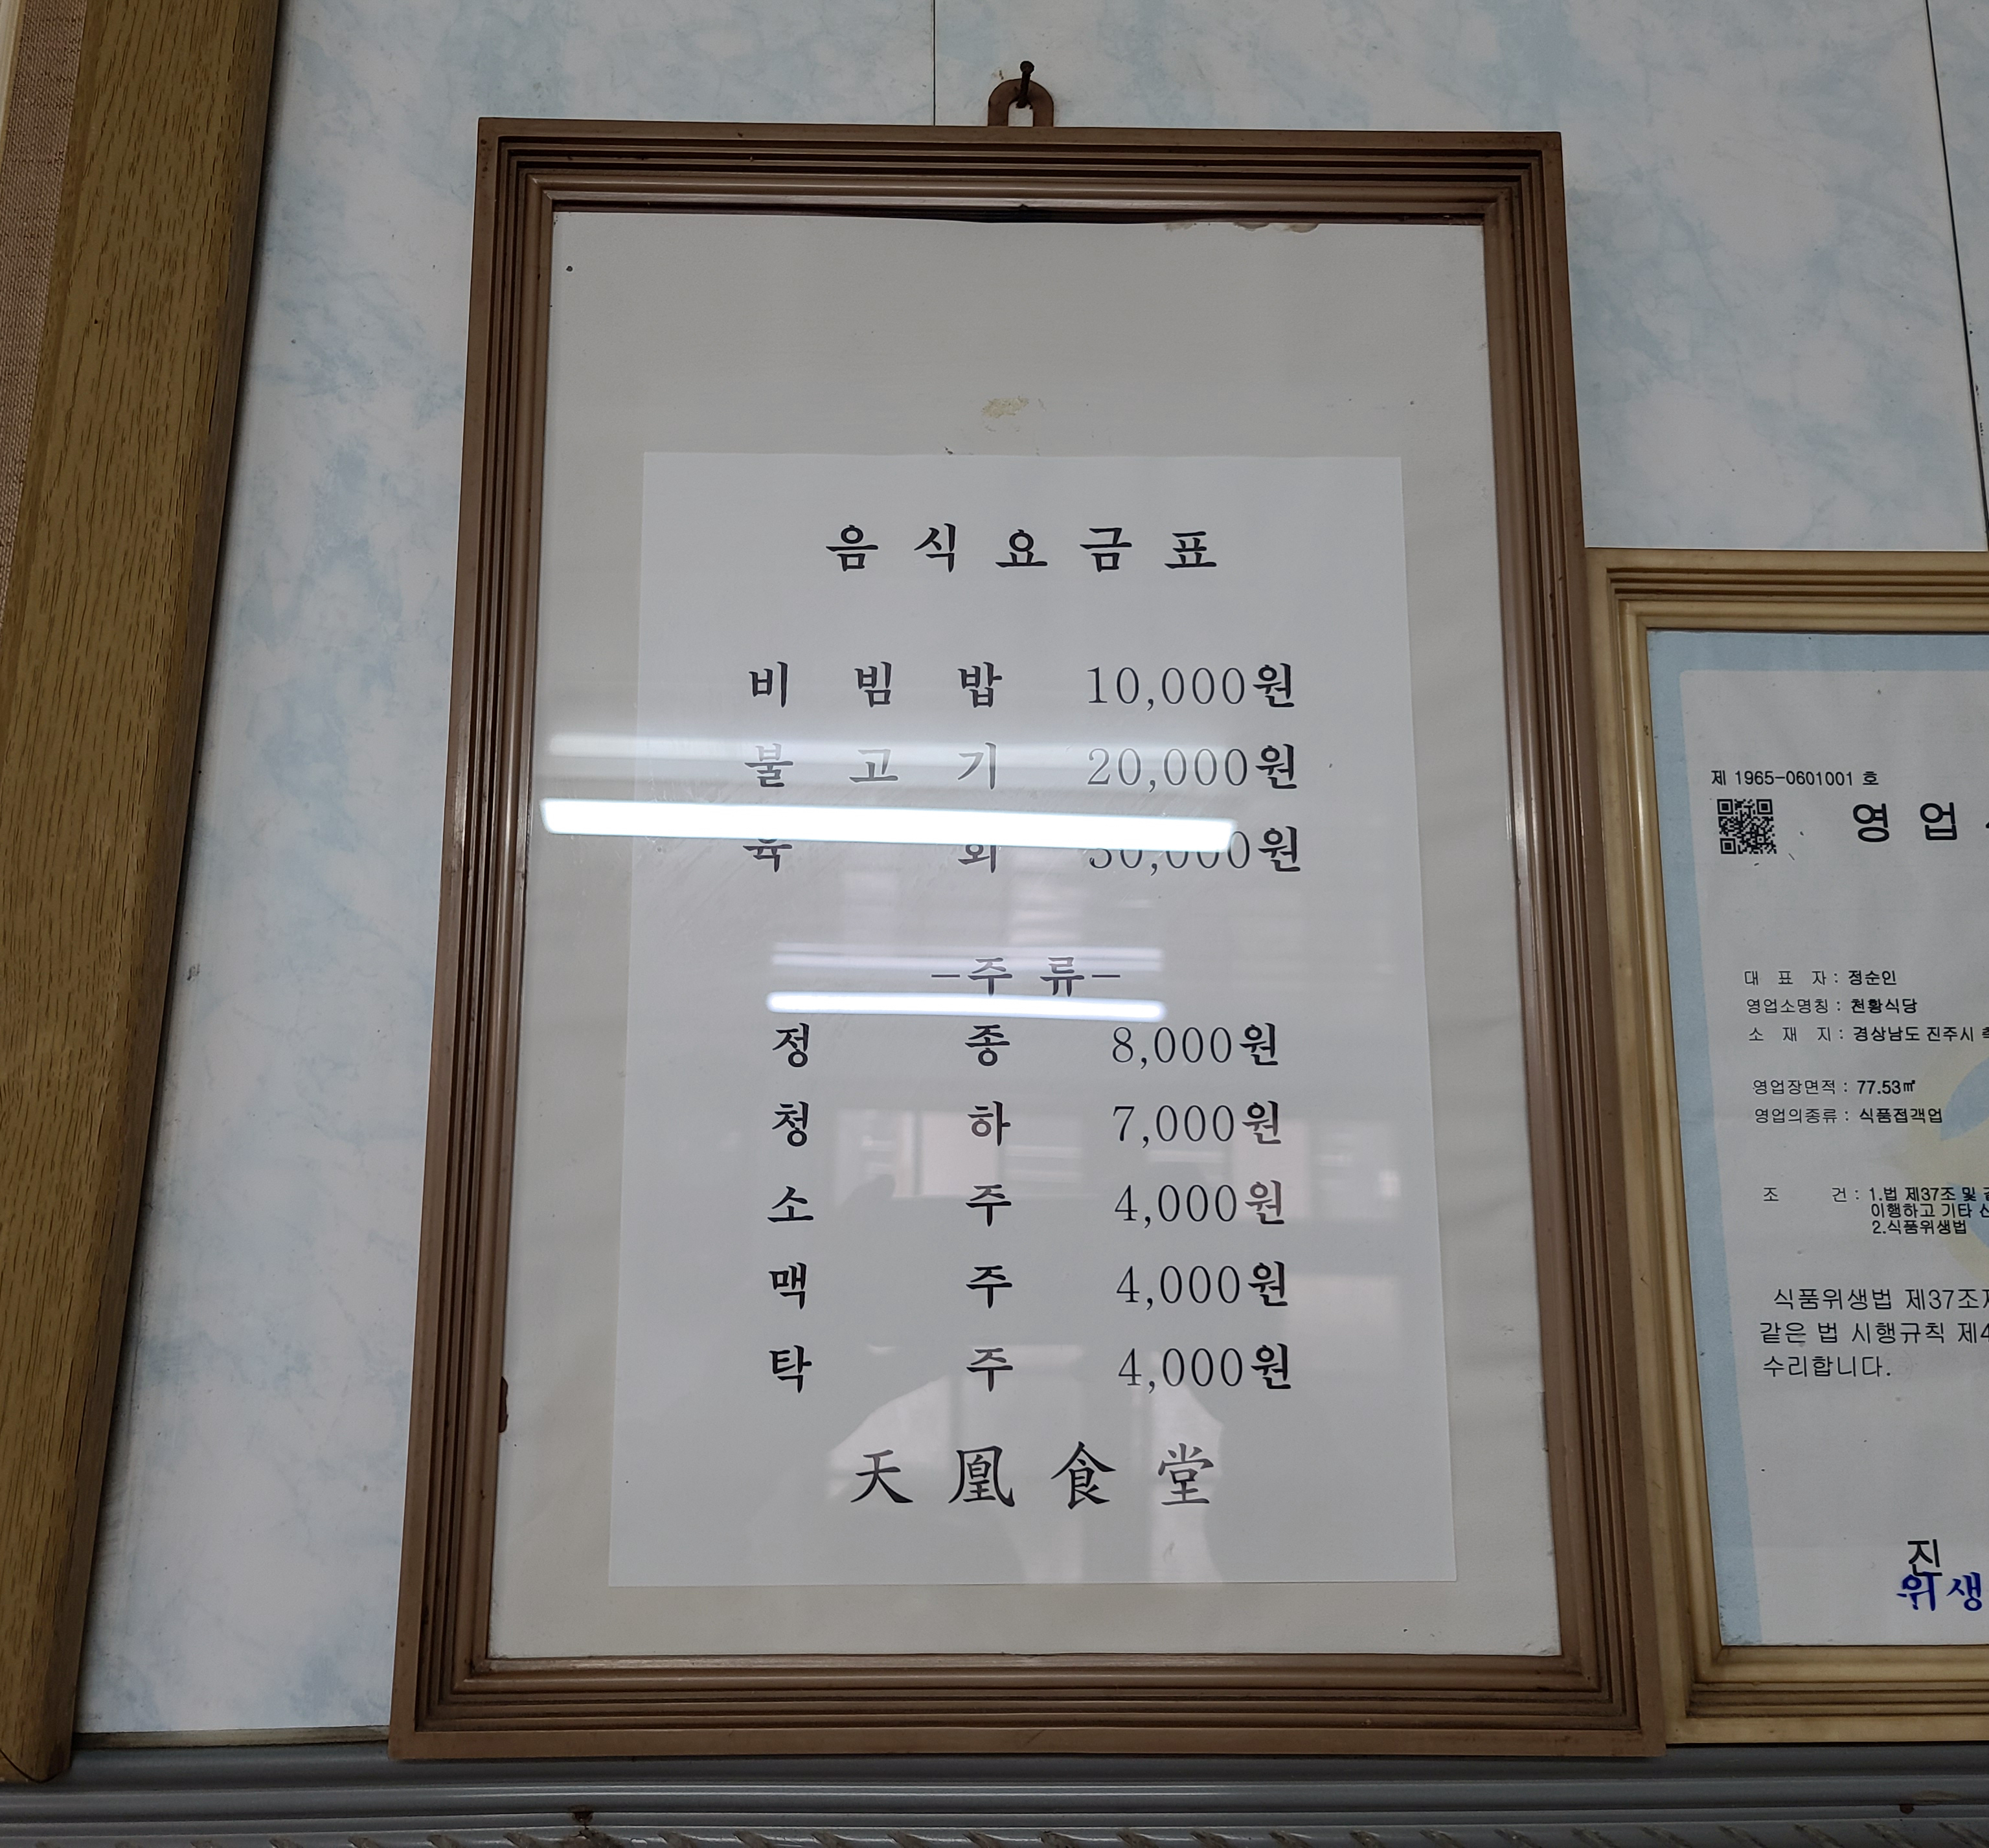 음 식 요 금 표
비 빔 밥 10,000원
불 고 기 20,000원
육 회
-주 류-
정 종 8,000원
청 하 7,000원
소 주 4,000원
맥 주 4,000원
탁 주 4,000원
天 凰 食 堂
제 1965-0601001 호
영 업
대 표 자 : 정순인
영업소명칭 : 천황식당
소 재 지 : 경상남도 진주시
영업장면적 : 77.53㎡
영업의종류 : 식품접객업
조 건 : 1.법 제37조 및
이행하고 기타
2.식품위생법
식품위생법 제37조
같은 법 시행규칙 제4
수리합니다.
진
위생